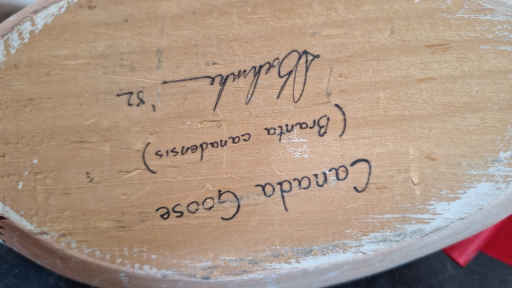 Canada Goose
(Branta canadensis)
'82